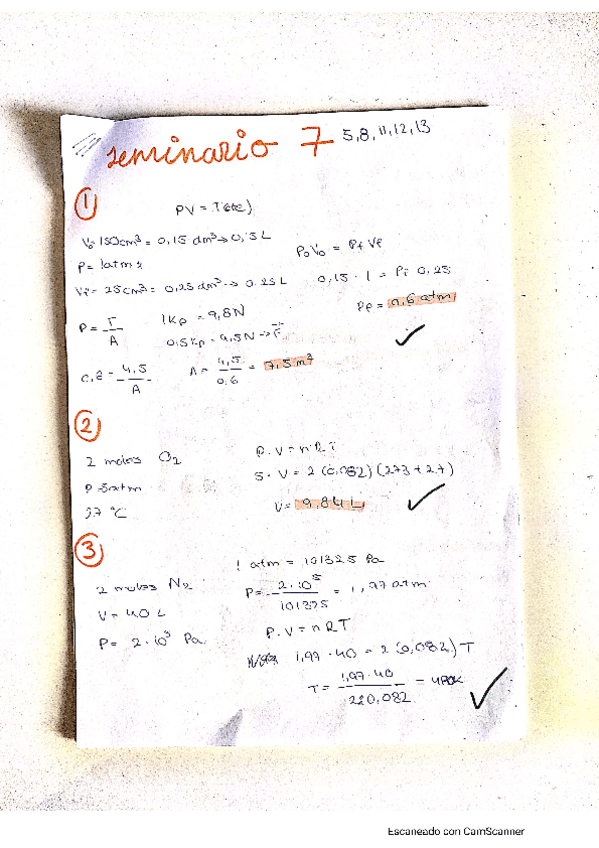 seminario 7 5,8,11,12,13
1
PV = T(cte)
V₀ = 150cm³ = 0,15 dm³ → 0,15 L
P₀V₀ = Pf Vf
P = 1 atm
Vf = 25cm³ = 0,25 dm³ → 0.25 L
0,15 · 1 = Pf 0,25
Pf = 0,6 atm
P = F/A
1Kp = 9,8N
0,5Kp = 4,5N → F
0,6 = 4,5/A
A = 4,5/0,6 = 7,5 m²
2
2 moles O₂
P·V = nRT
P = 5 atm
5·V = 2(0,082)(273+27)
27 °C
V = 9,84 L
3
1 atm = 101325 Pa
2 moles N₂
P = 2·10⁵/101325 = 1,97 atm
V = 40 L
P = 2·10⁵ Pa
P·V = nRT
1,97 · 40 = 2(0,082)T
T = 1,97·40/2·0,082 = 480K
Escaneado con CamScanner